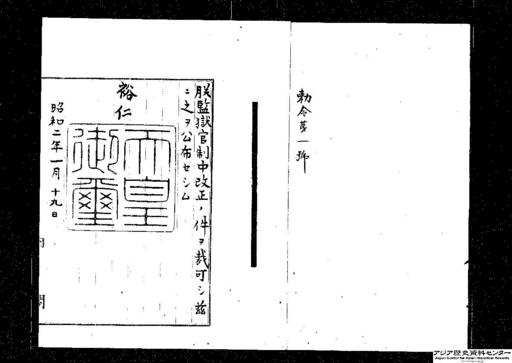 勅令第一號
朕監獄官制中改正ノ件ヲ裁可シ茲
ニ之ヲ公布セシム
裕仁
天皇御璽
昭和二年一月十九日
内閣
アジア歴史資料センター
Japan Center for Asian Historical Records